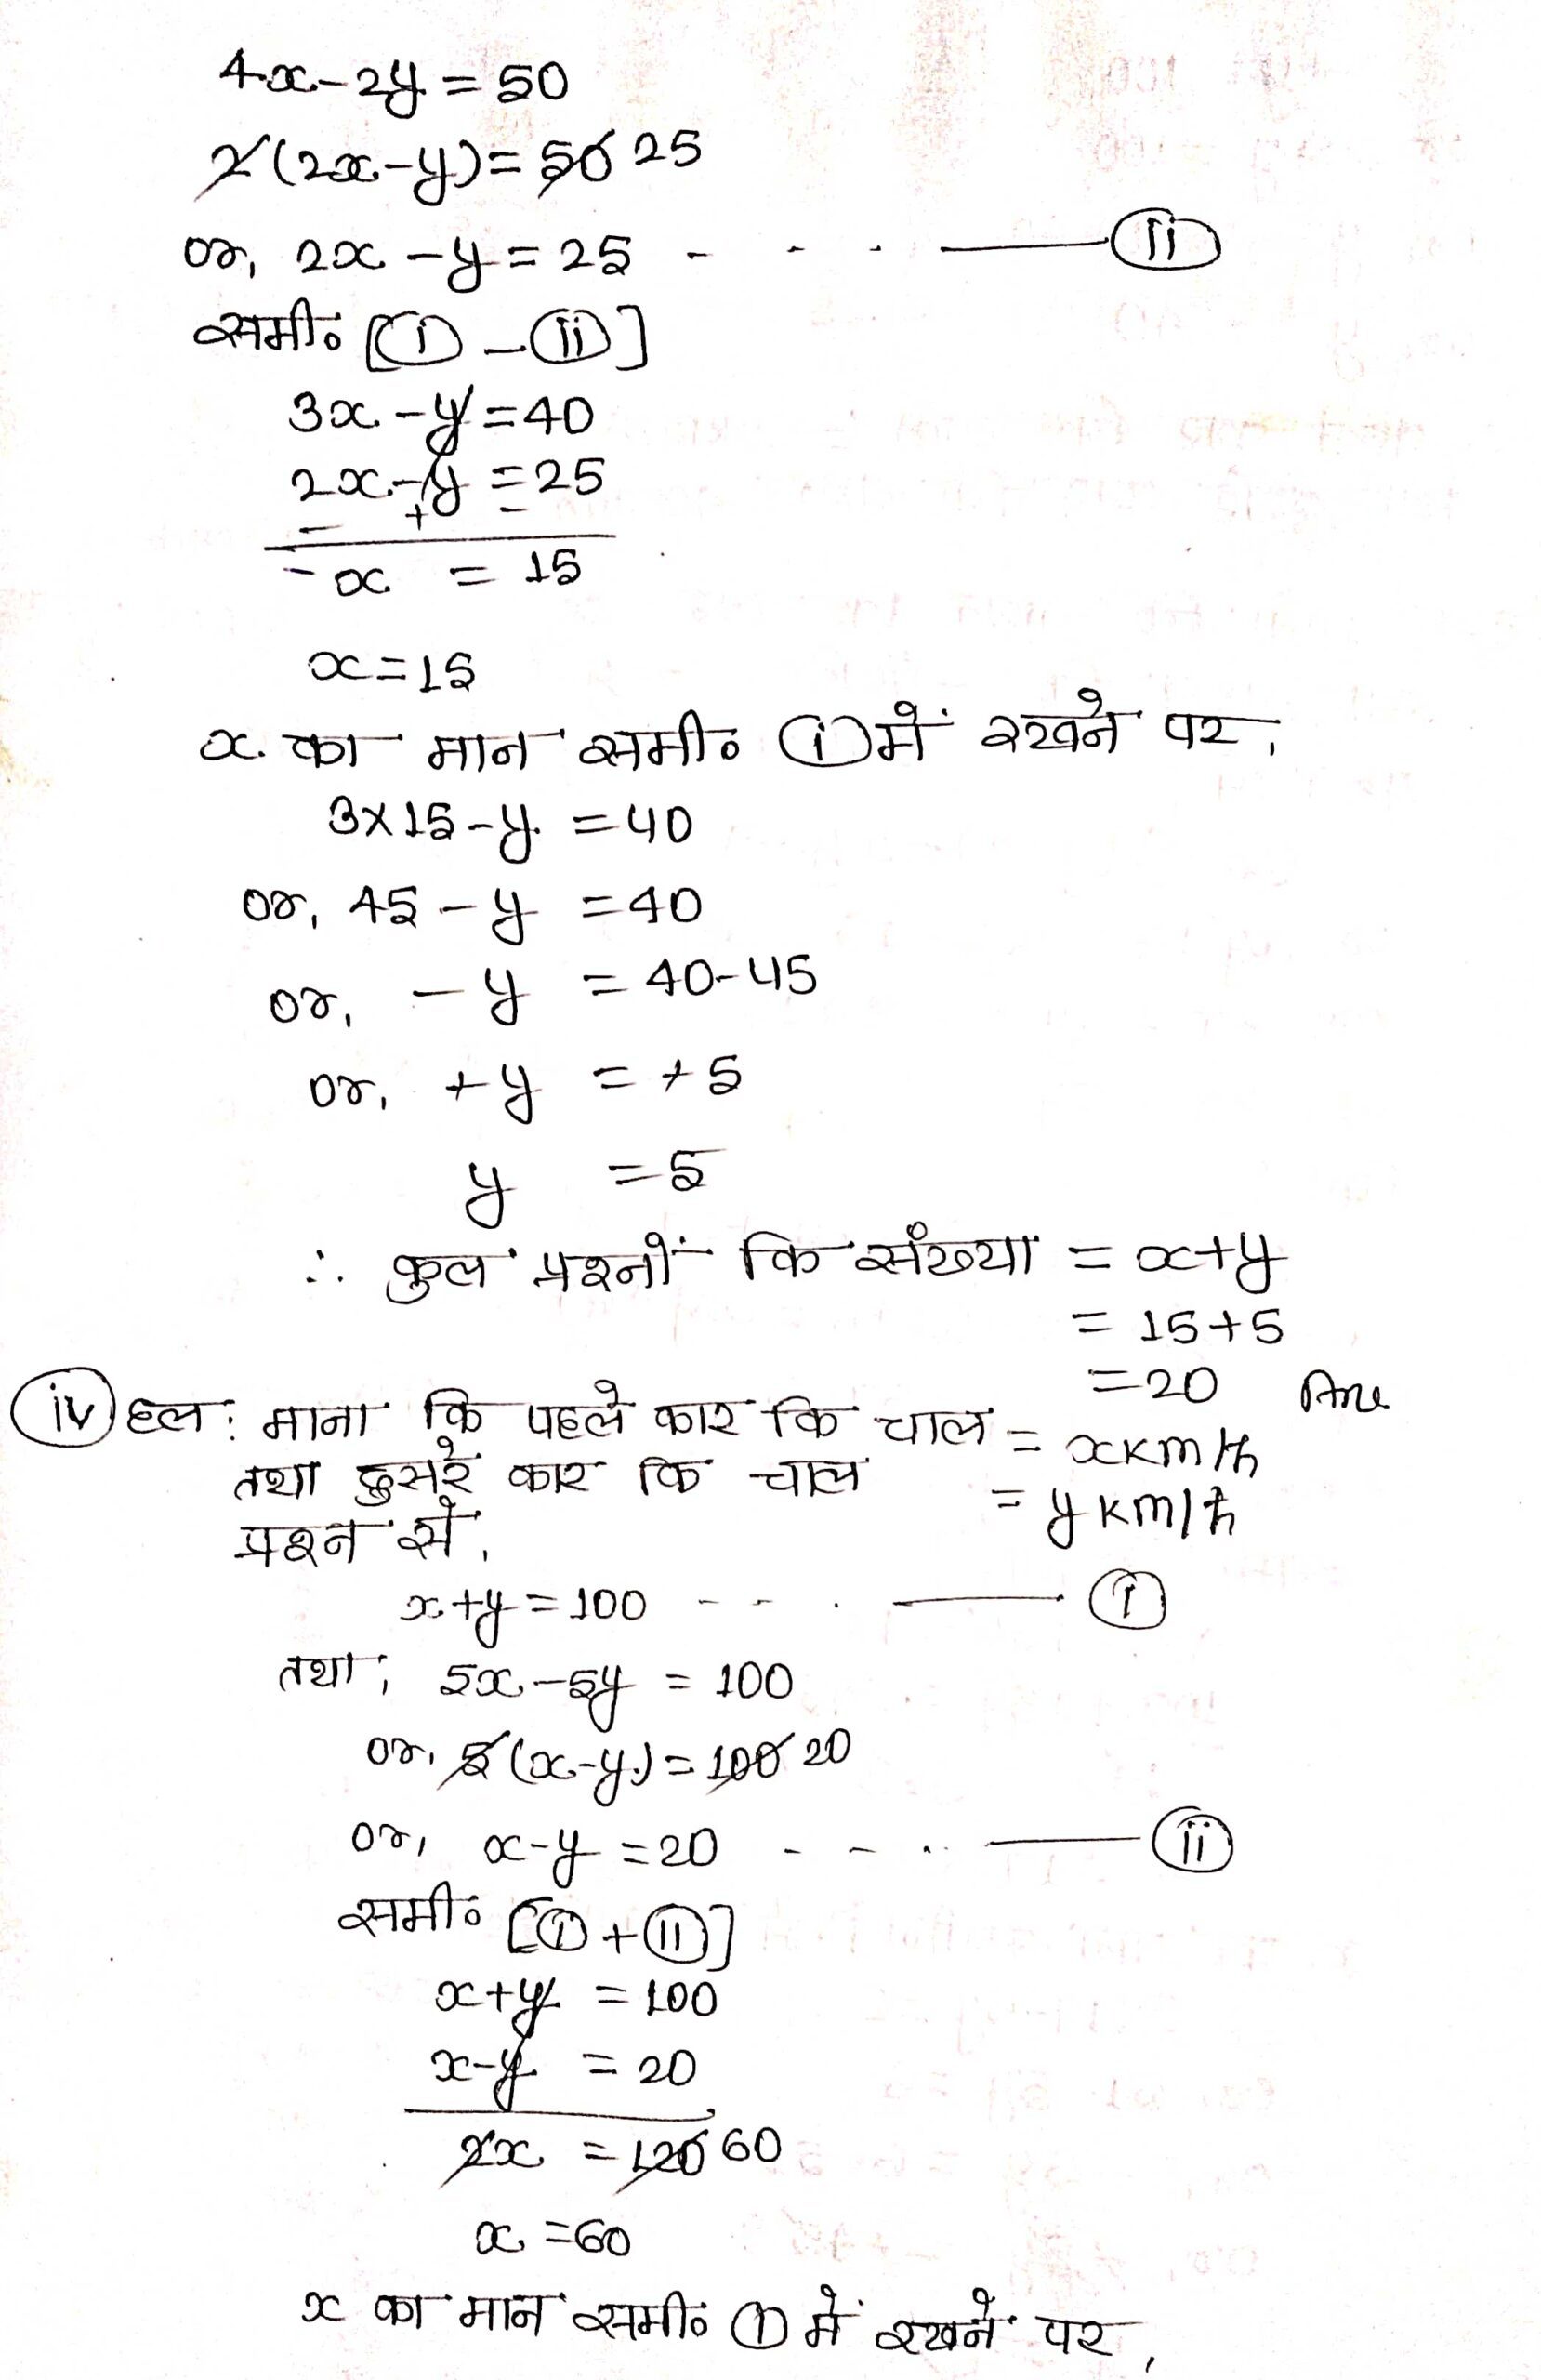 4x-2y=50
2(2x-y)=50 25
or, 2x-y=25 - - - —— (ii)
समी० [(i) - (ii)]
3x-y=40
2x-y=25
- + -
- x = 15
x=15
x का मान समी० (i) में रखने पर,
3×15-y=40
or, 45-y=40
or, -y=40-45
or, +y=+5
y=5
∴ कुल प्रश्नों कि संख्या = x+y
= 15+5
=20 Ans
(iv) हल: माना कि पहले कार कि चाल = xkm/h
तथा दुसरे कार कि चाल = ykm/h
प्रश्न से,
x+y=100 - - . —— (i)
तथा, 5x-5y=100
or, 5(x-y)=100 20
or, x-y=20 - - .. —— (ii)
समी० [(i)+(ii)]
x+y=100
x-y=20
2x=120 60
x=60
x का मान समी० (i) में रखने पर,